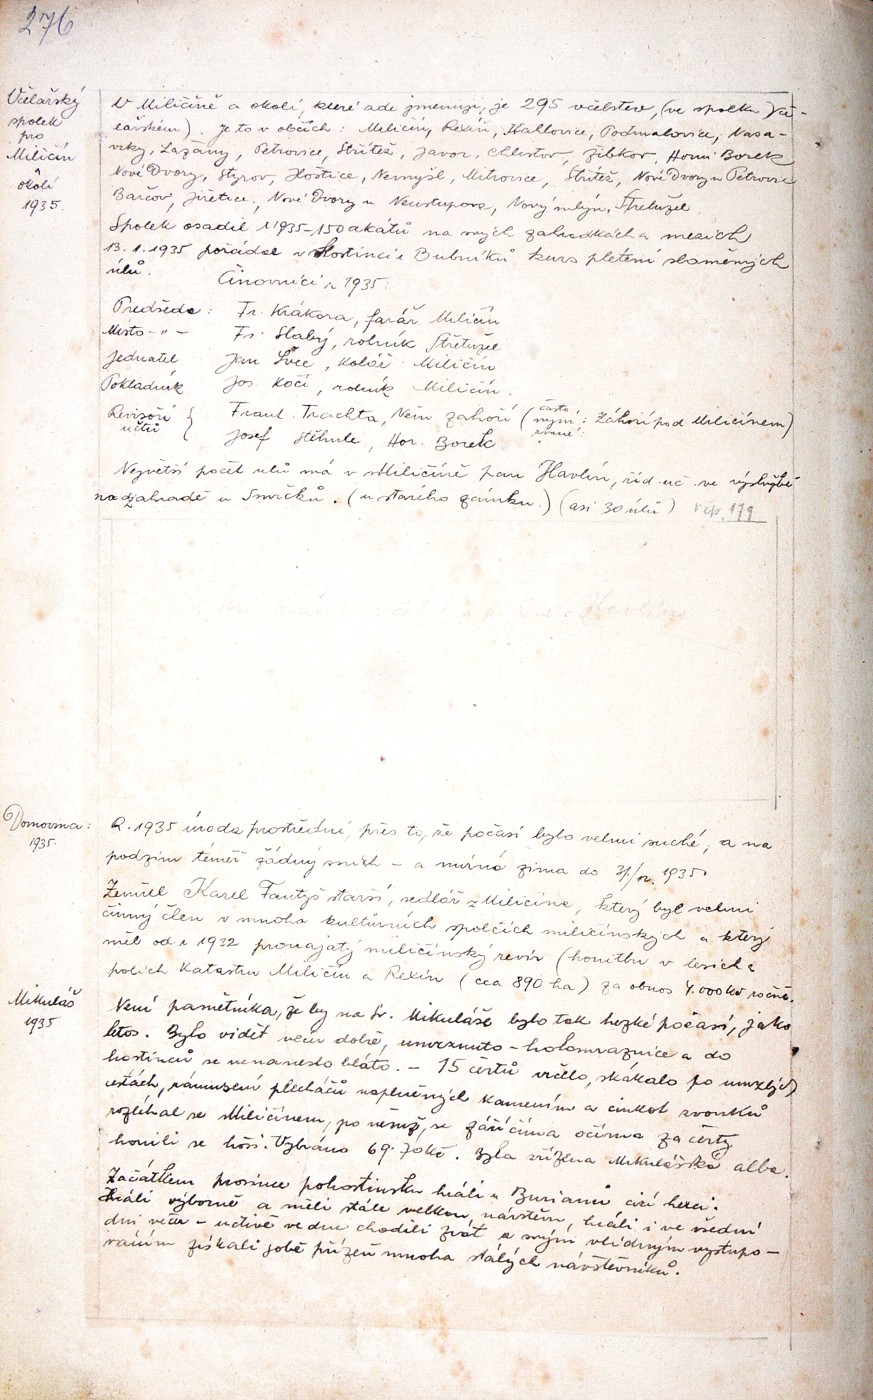 276
Včelařský
spolek
pro
Miličín
a
okolí
1935.
V Miličíně a okolí, které zde jmenuji, je 295 včelstev, (ve spolku vče-
lařském). Je to v obcích: Miličín, Reksín, Kahlovice, Podmahovice, Nasa-
vrky, Lažany, Petrovice, Střítež, Javor, Chlistov, Žibkov, Horní Borek
Nové Dvory, Styrov, Hostice, Nemyšl, Mitrovice, Střítež, Nové Dvory u Petrovic
Barčov, Jiřetice, Nové Dvory u Neustupova, Nový mlýn, Střetuzel.
Spolek osadil r 1935 - 150 akátů na svých zahradkách a mezích
13. 1. 1935 pořádal v hostinci u Bubníků kurs pletení slaměných
úlů.
Činovníci r 1935:
Předseda: Fr. Krákora, farář Miličín
Místo - " - Fr. Slabý, rolník Střetuzel
Jednatel Jan Švec, kolář Miličín
Pokladník Jos. Kočí, rolník Miličín.
Revisoři účtů { Frant. Trachta, Něm. zahoří (často nyní zvané: Záhoří pod Miličínem)
Josef Stěhule, Hor. Borek
Největší počet ulů má v Miličíně pan Havlín, říd. uč. ve výslužbě
na zahradě u Smrčků. (u starého zámku.) (asi 30 úlů) Viz s. 179
Domovina:
1935.
R. 1935 úroda prostřední, přes to, že počasí bylo velmi suché, a na
podzim téměř žádný sníh - a mírná zima do 31/12. 1935.
Zemřel Karel Fantyš starší, sedlář z Miličína, který byl velmi
činný člen v mnoha kulturních spolcích miličínských a který
měl od r 1932 pronajatý miličínský revír (honitbu v lesích a
polích katastru Miličín a Reksín (cca 890 ha) za obnos 4.000 Kč ročně.
Mikuláš
1935
Není pamětníka, že by na sv. Mikuláše bylo tak hezké počasí, jako
letos. Bylo vidět večer dobře, umrznuto - holomraznice a do
hostinců se nenaneslo bláto. - 15 čertů vřelo, skákalo po umrzlých
cestách, rámusení plecháčů naplněných kamením a cinkot zvonků
rozléhal se Miličínem, po němž, se zářícíma očima za čerty
honili se hoši. Vybráno 69.70 Kč. Byla zřízena Mikulášská alba.
Začátkem prosince pohostinsku hráli u Burianů cizí herci.
Hráli výborně a měli stále velkou návštěvu, hráli i ve všední
dni večer - uctivě ve dne chodili zvát a svým vlídným vystupo-
váním získali sobě přízeň mnoha stálých návštěvníků.